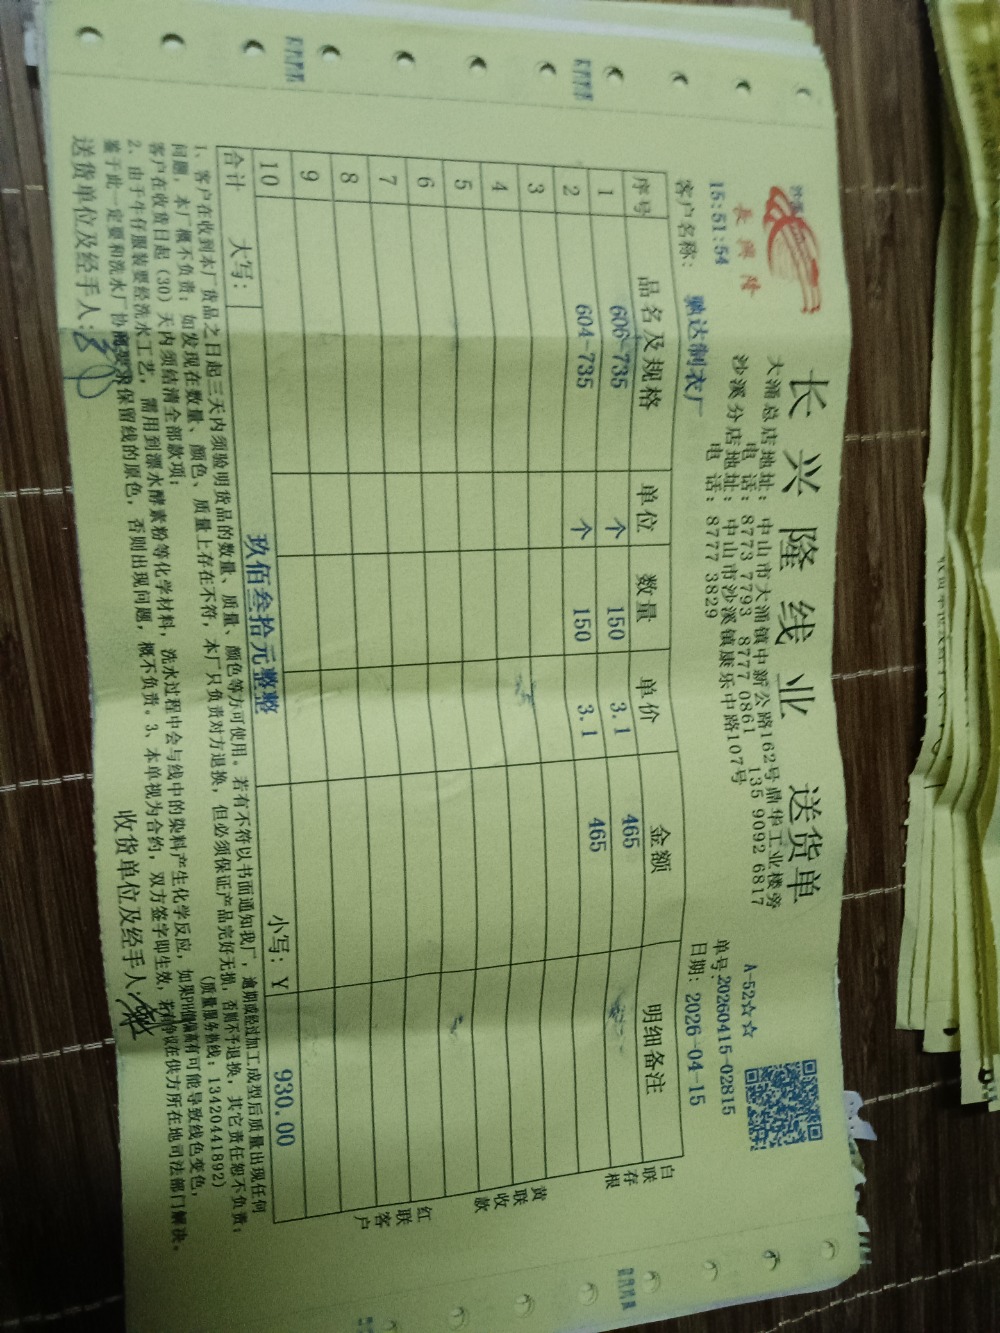 長興隆
长兴隆线业 送货单
大涌总店地址：中山市大涌镇中新公路162号鼎华工业楼旁
电 话：8773 7793 8777 0861 135 9092 6817
沙溪分店地址：中山市沙溪镇康乐中路107号
电 话：8777 3829
A-52☆☆
15:51:54
单号：20260415-02815
客户名称： 驰达制衣厂
日期：2026-04-15
序号 品名及规格 单位 数量 单价 金额 明细备注
1 606-735 个 150 3.1 465
2 604-735 个 150 3.1 465
3
4
5
6
7
8
9
10
合计 大写： 玖佰叁拾元整整 小写：Y 930.00
白联存根
黄联收款
红联客户
1、客户在收到本厂货品之日起三天内须验明货品的数量、质量、颜色等方可使用。若有不符以书面通知我厂，逾期或经过加工成型后质量出现任何
问题，本厂概不负责；如发现在数量、颜色、质量上存在不符，本厂只负责对方退换，但必须保证产品完好无损，否则不予退换，其它责任恕不负责；
客户在收费日起（30）天内须结清全部款项； （质量服务热线：13420441892）
2、由于牛仔服装要经洗水工艺，需用到漂水酵素粉等化学材料，洗水过程中会与线中的染料产生化学反应，如果PH值偏高有可能导致线色变色，
鉴于此一定要和洗水厂协商要求保留线的原色，否则出现问题，概不负责。3、本单视为合约，双方签字即生效，若有争议在供方所在地司法部门解决。
送货单位及经手人： 收货单位及经手人：